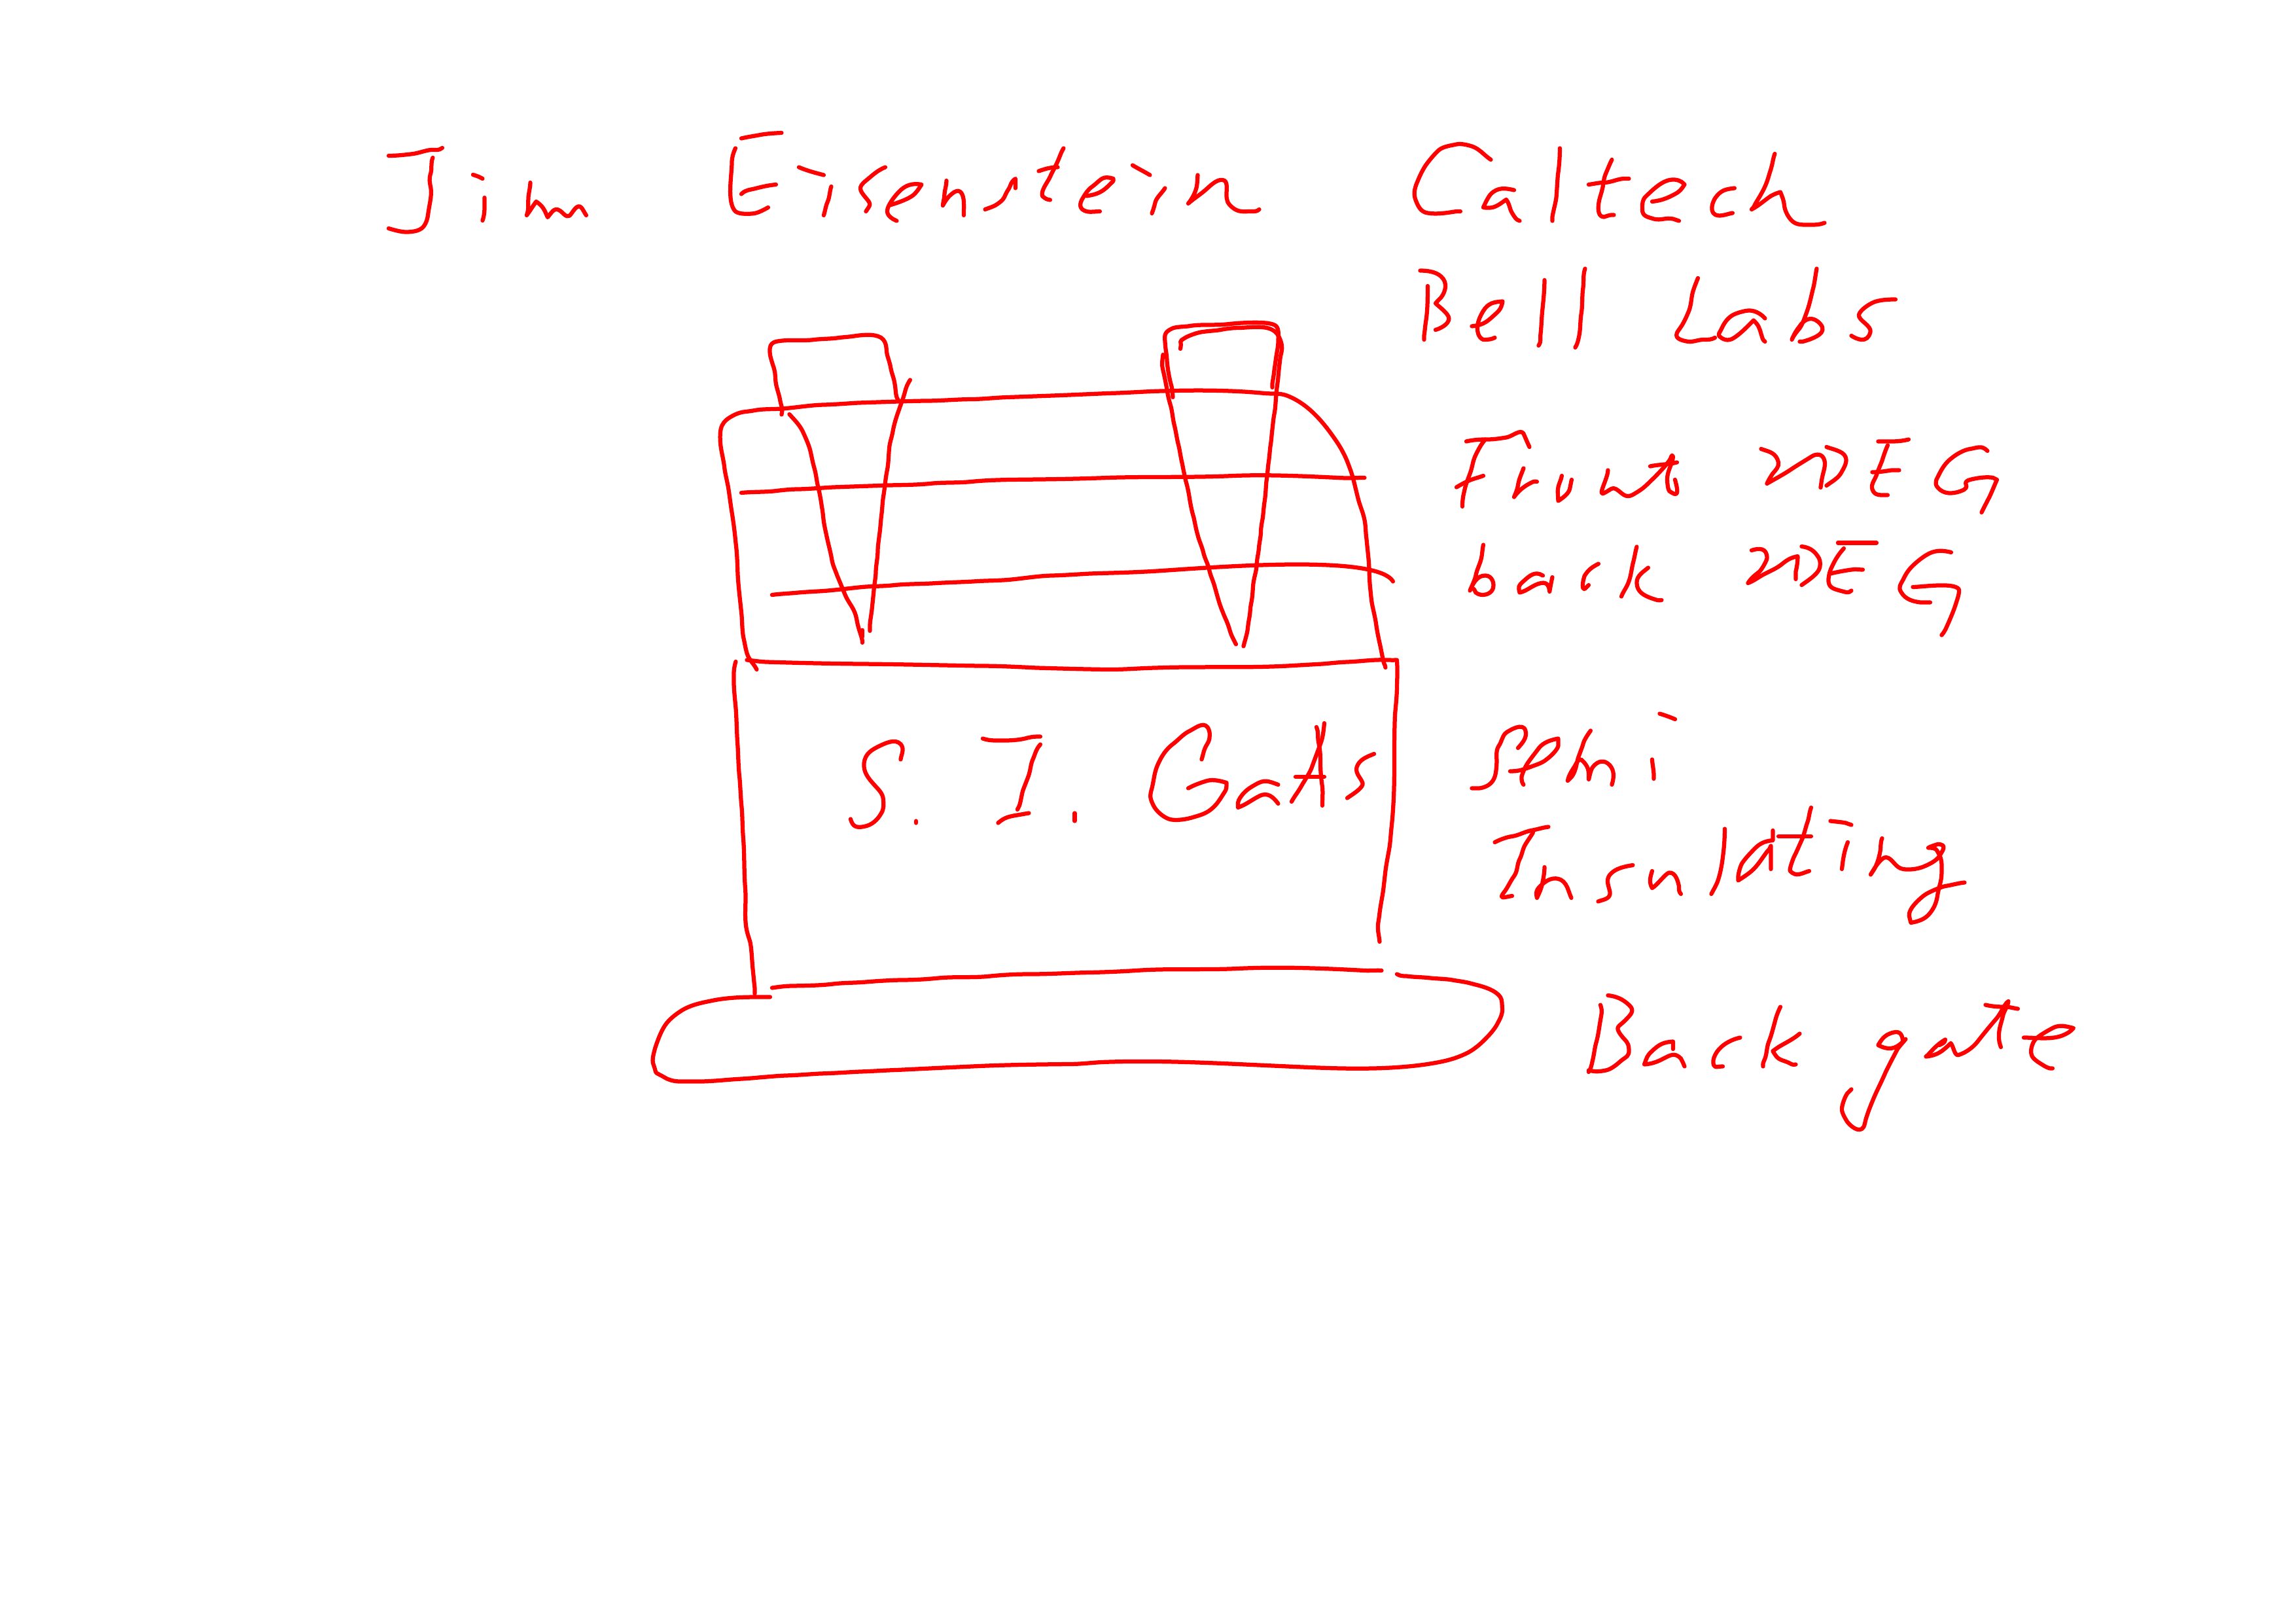 Jim Eisenstein Caltech
Bell Labs
Front 2DEG
back 2DEG
S. I. GaAs
Semi
Insulating
Back gate